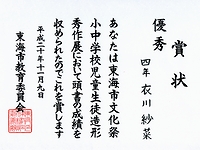 賞状
優秀
四年 衣川紗菜
あなたは東海市文化祭
小中学校児童生徒造形
秀作展において頭書の成績を
収められたのでこれを賞します
平成二十年十一月九日
東海市教育委員会